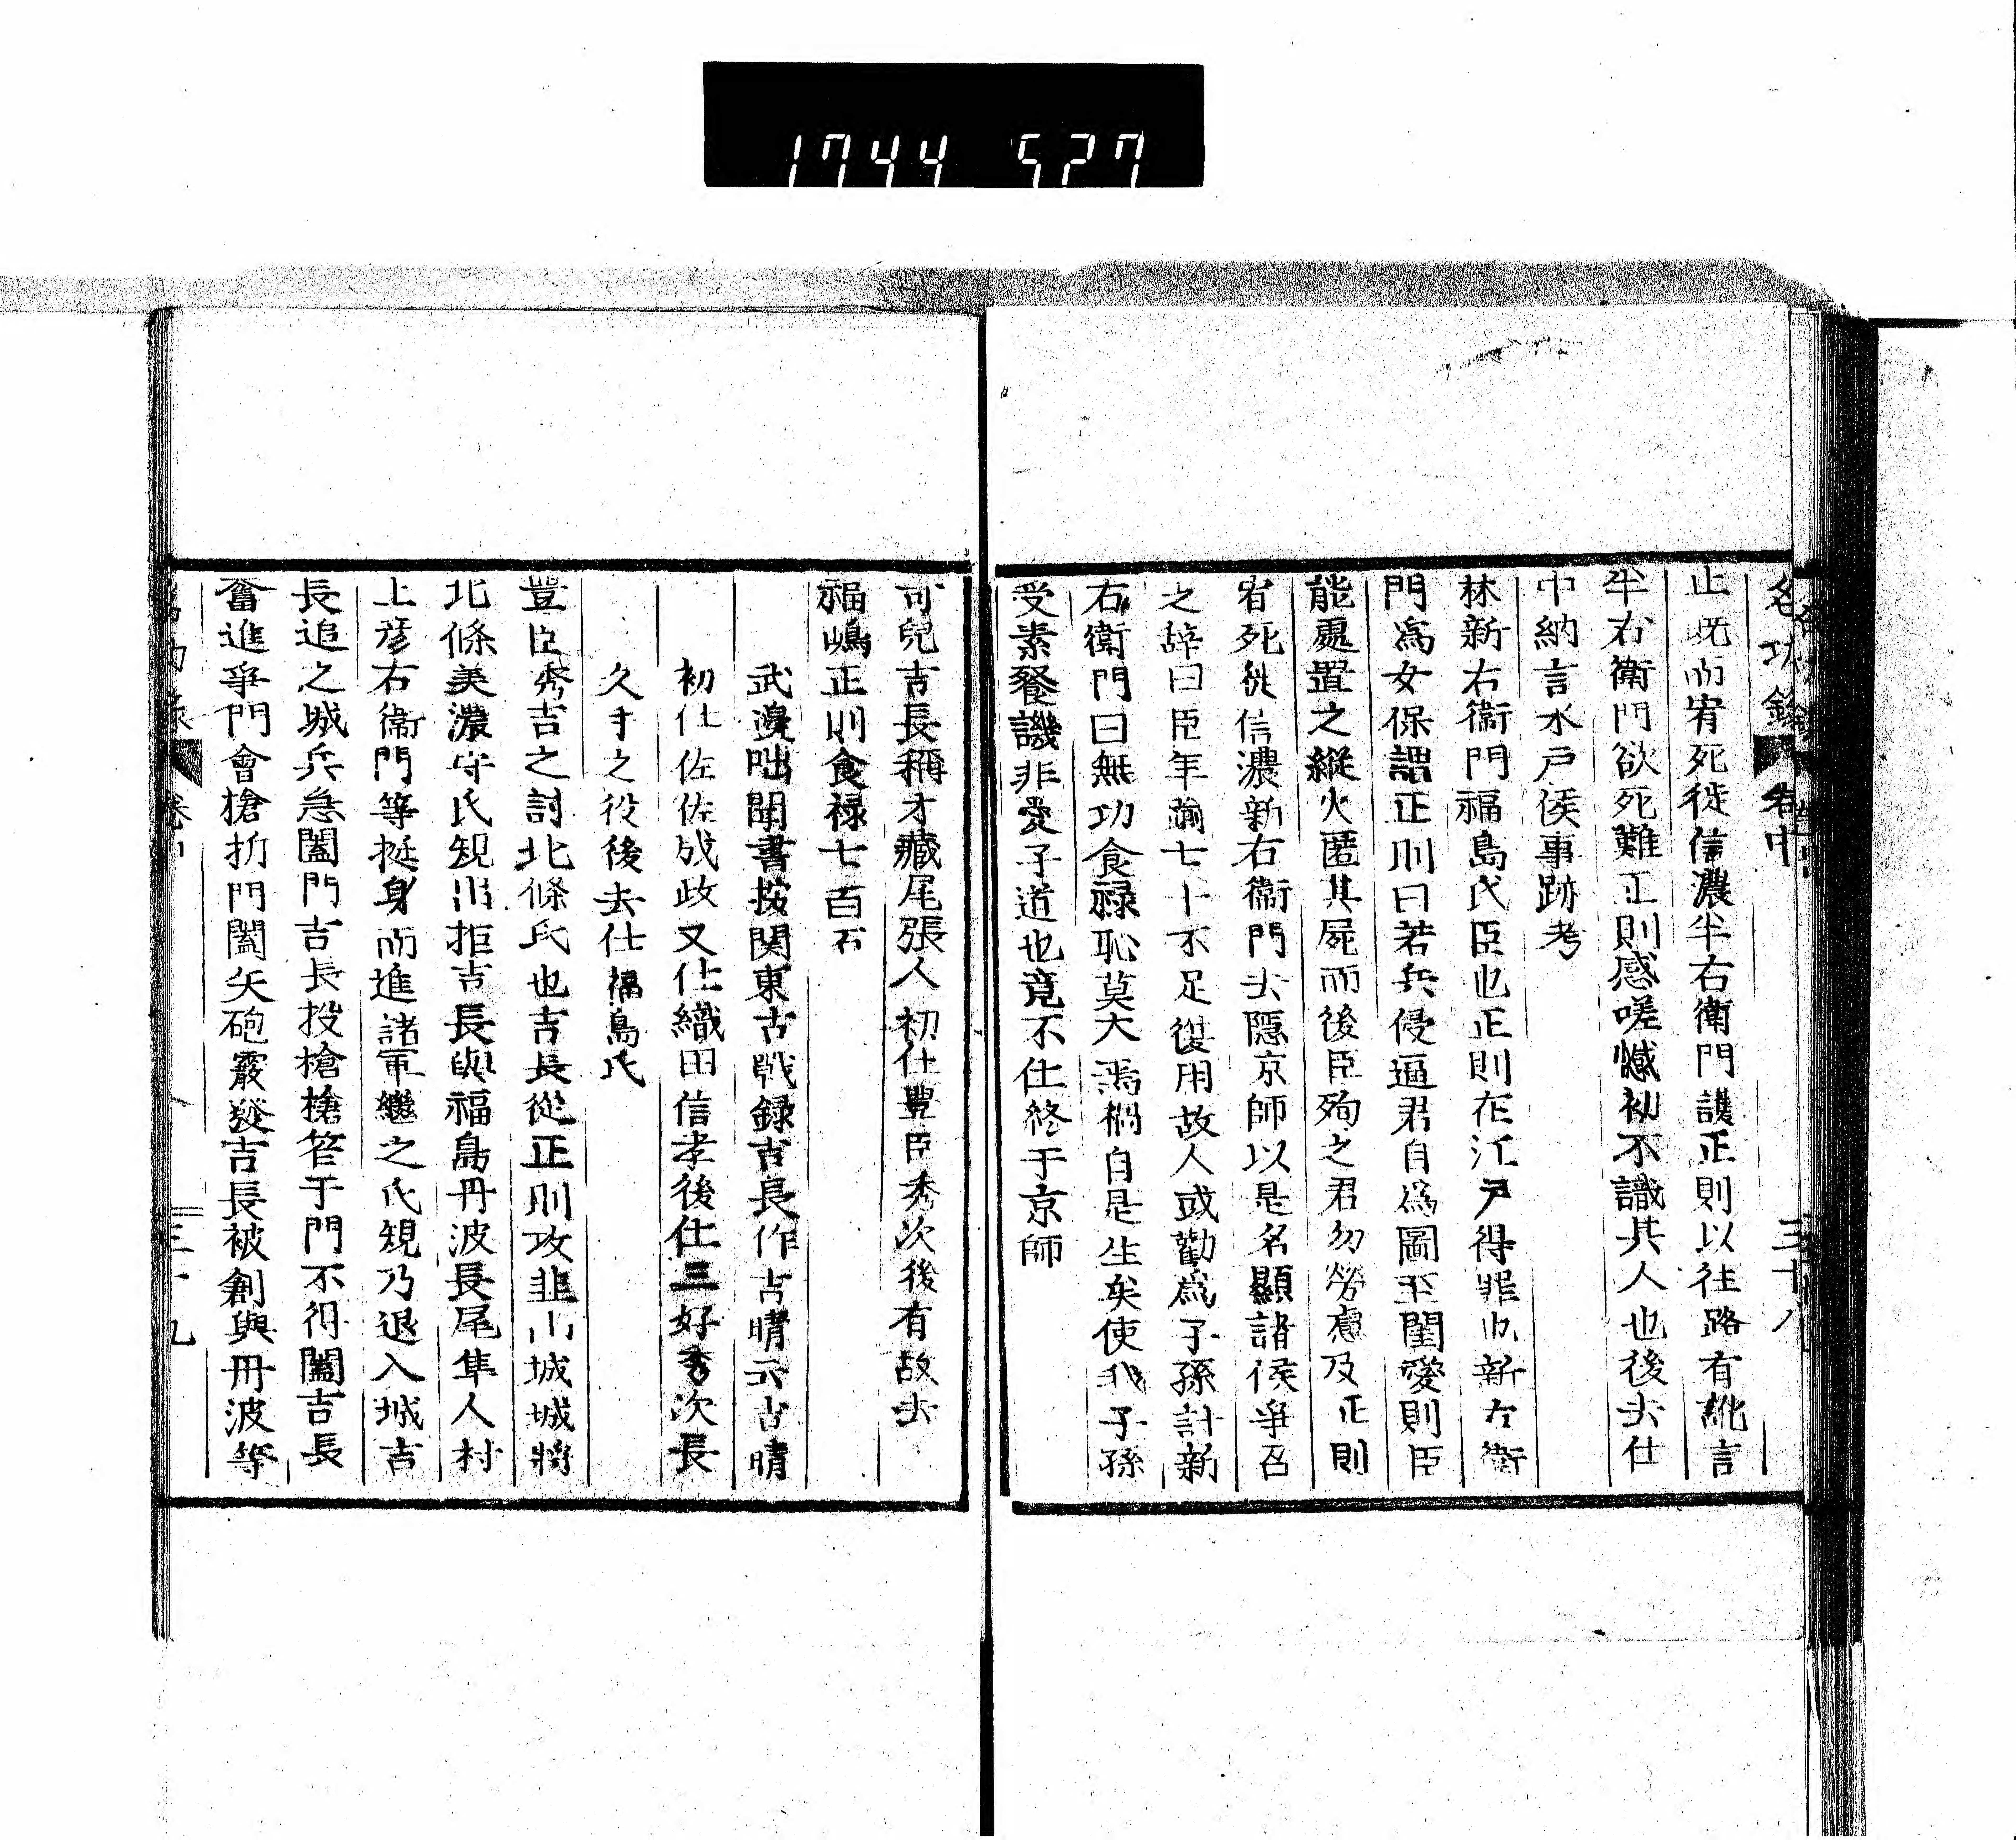 1744 527
名功錄 卷中 三十八
止既而宥死徙信濃半右衛門護正則以往路有訛言
半右衛門欲死難正則感嗟憾初不識其人也後去仕
中納言水戸侯事跡考
林新右衛門福島氏臣也正則在江戸得罪也新右衛
門爲女保謂正則曰若兵侵逼君自爲圖至閨愛則臣
能處置之縱火匿其屍而後臣殉之君勿勞慮及正則
宥死徙信濃新右衛門去隱京師以是名顯諸侯爭召
之辭曰臣年踰七十不足復用故人或勸爲子孫計新
右衛門曰無功食祿恥莫大焉榾自是生矣使我子孫
受素餐譏非愛子道也竟不仕終于京師
可兒吉長稱才藏尾張人初仕豊臣秀次後有故去
福嶋正則食祿七百石
武邊咄聞書按関東古戰録吉長作吉晴云吉晴
初仕佐佐成政又仕織田信孝後仕三好秀次長
久手之役後去仕福島氏
豐臣秀吉之討北條氏也吉長從正則攻韮山城城將
北條美濃守氏規出拒吉長與福島丹波長尾隼人村
上彦右衛門等挺身而進諸軍繼之氏規乃退入城吉
長追之城兵急闔門吉長投槍槍笮于門不得闔吉長
奮進爭門會槍折門闔矢砲霰發吉長被創與丹波等
三十九